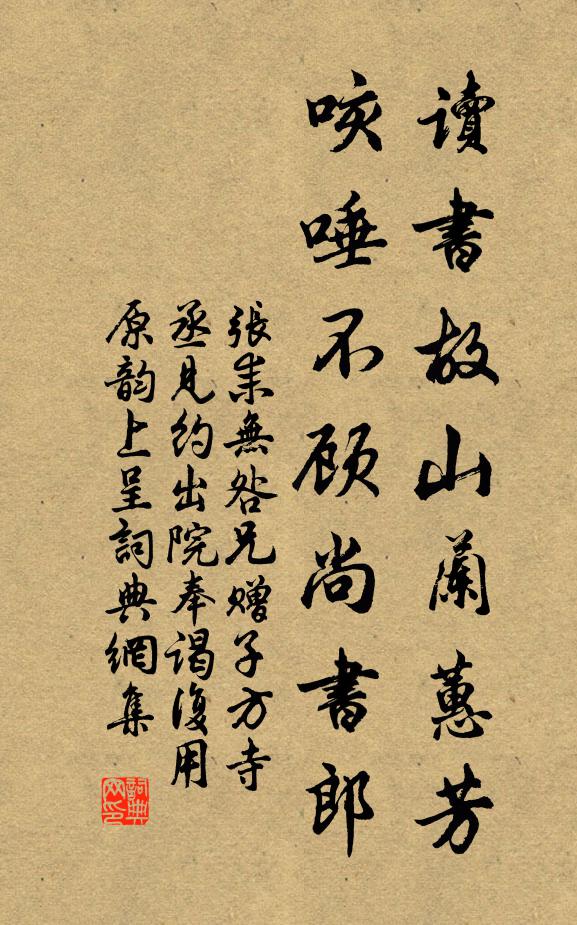 讀書故山蘭蕙芳
咳唾不顾尚書郎
張耒無咎兄赠子方寺
丞見約出院奉謁復用
原韵上呈詞典網集
詞典
网印